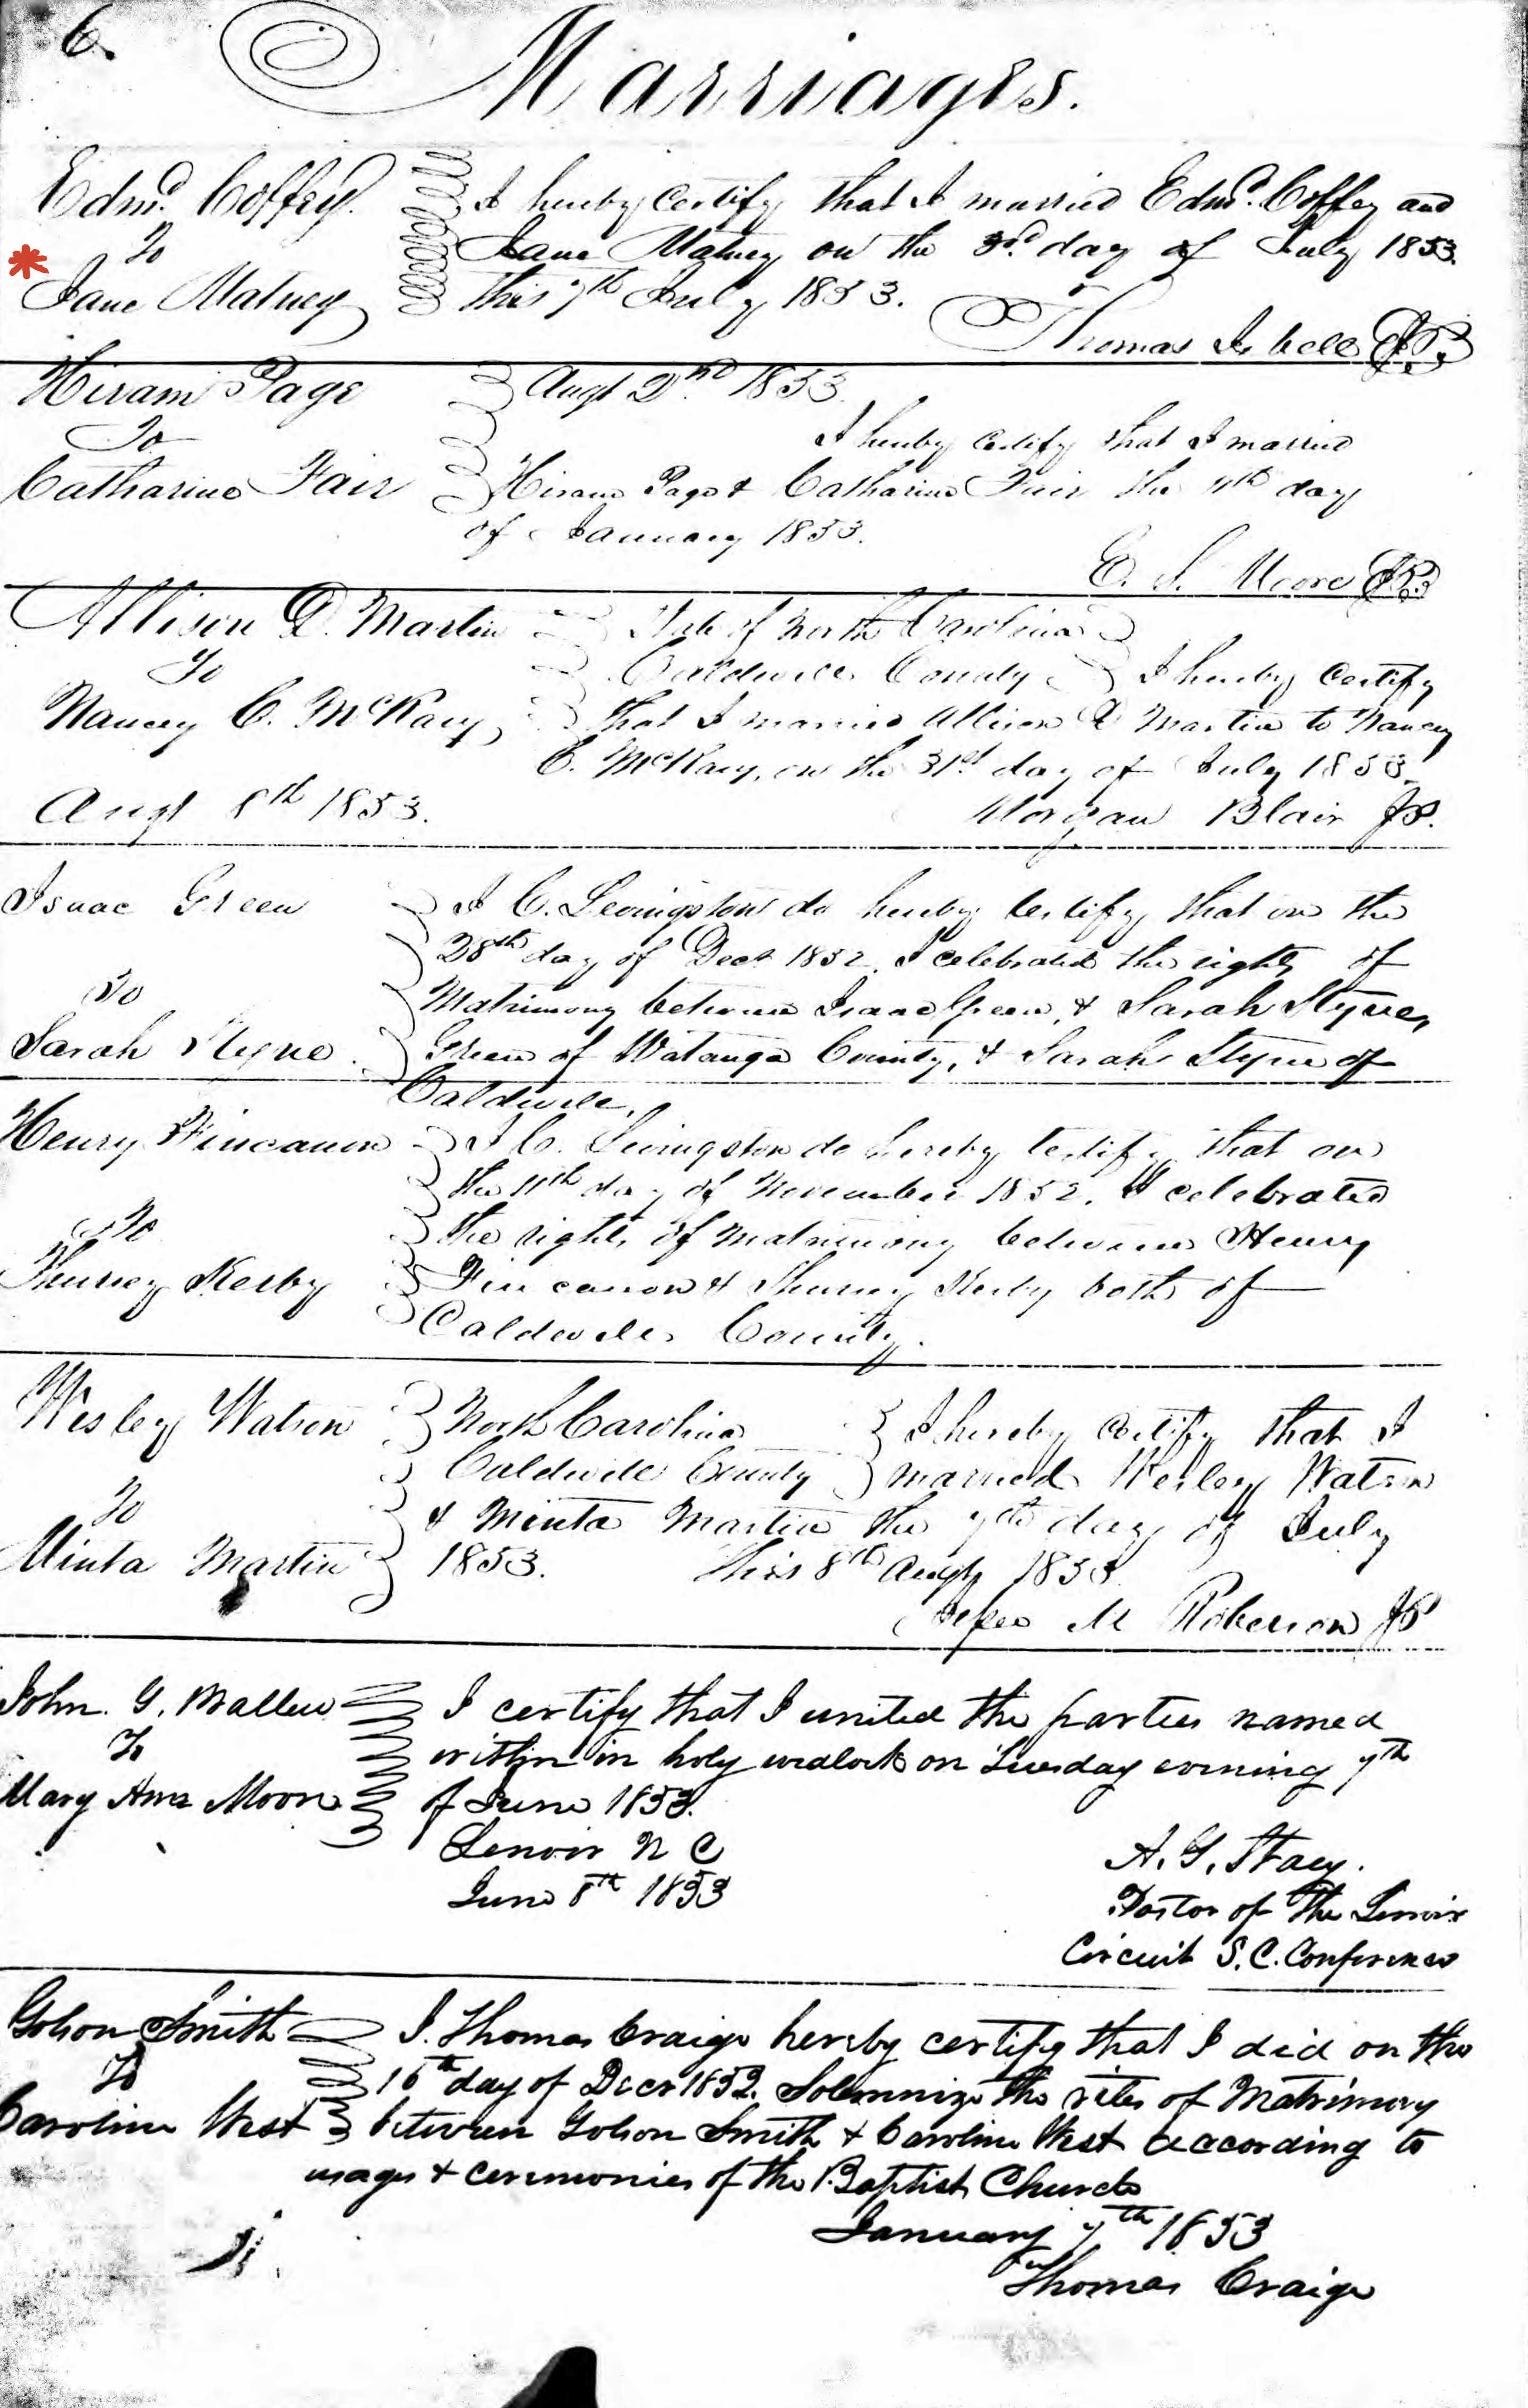 6.
Marriages.
Edmd. Coffey.
To
Jane Matney
I hereby certify that I married Edmd. Coffey and
Jane Matney on the 3rd day of July 1853.
this 7th July 1853.
Thomas Isbell JP.
Hiram Page
To
Catharine Fair
Augt 2nd 1853.
I hereby certify that I married
Hiram Page & Catharine Fair the 11th day
of January 1853.
E. S. Moore JP.
Allison D. Martin
To
Nancy C. McKary
Augt 8th 1853.
State of North Carolina
Caldwell County I hereby certify
that I married Allison D Martin to Nancy
C. McKary, on the 31st day of July 1853.
Morgan Blair JP.
Isaac Green
To
Sarah Styne.
I C. Levingston do hereby certify that on the
28th day of Decr 1852. I celebrated the rights of
Matrimony between Isaac Green, & Sarah Styne,
Green of Watauga County, & Sarah Styne of
Caldwell.
Henry Fincanon
To
Kerby
I C. Livingston do hereby certify that on
the 11th day of November 1852. I celebrated
the rights of matrimony between Henry
Fincanon & Kerby both of
Caldwell County.
Wesley Watson
To
Minta Martin
North Carolina
Caldwell County
I hereby certify that I
married Wesley Watson
& Minta Martin the 7th day of July
1853. This 8th Augt 1853.
M Roberson JP
John. G. Ballew
To
Mary Ann Moore
I certify that I united the parties named
within in holy wedlock on Tuesday evening 7th
of June 1853.
Lenoir N C
June 8th 1853
A. G. Stacy.
Pastor of the Lenoir
Circuit S. C. Conference
Golson Smith
To
Caroline West
I. Thomas Craige hereby certify that I did on the
16th day of Decr 1852. Solemnize the rites of Matrimony
between Golson Smith & Caroline West according to
usages & ceremonies of the Baptist Church
January 7th 1853
Thomas Craige